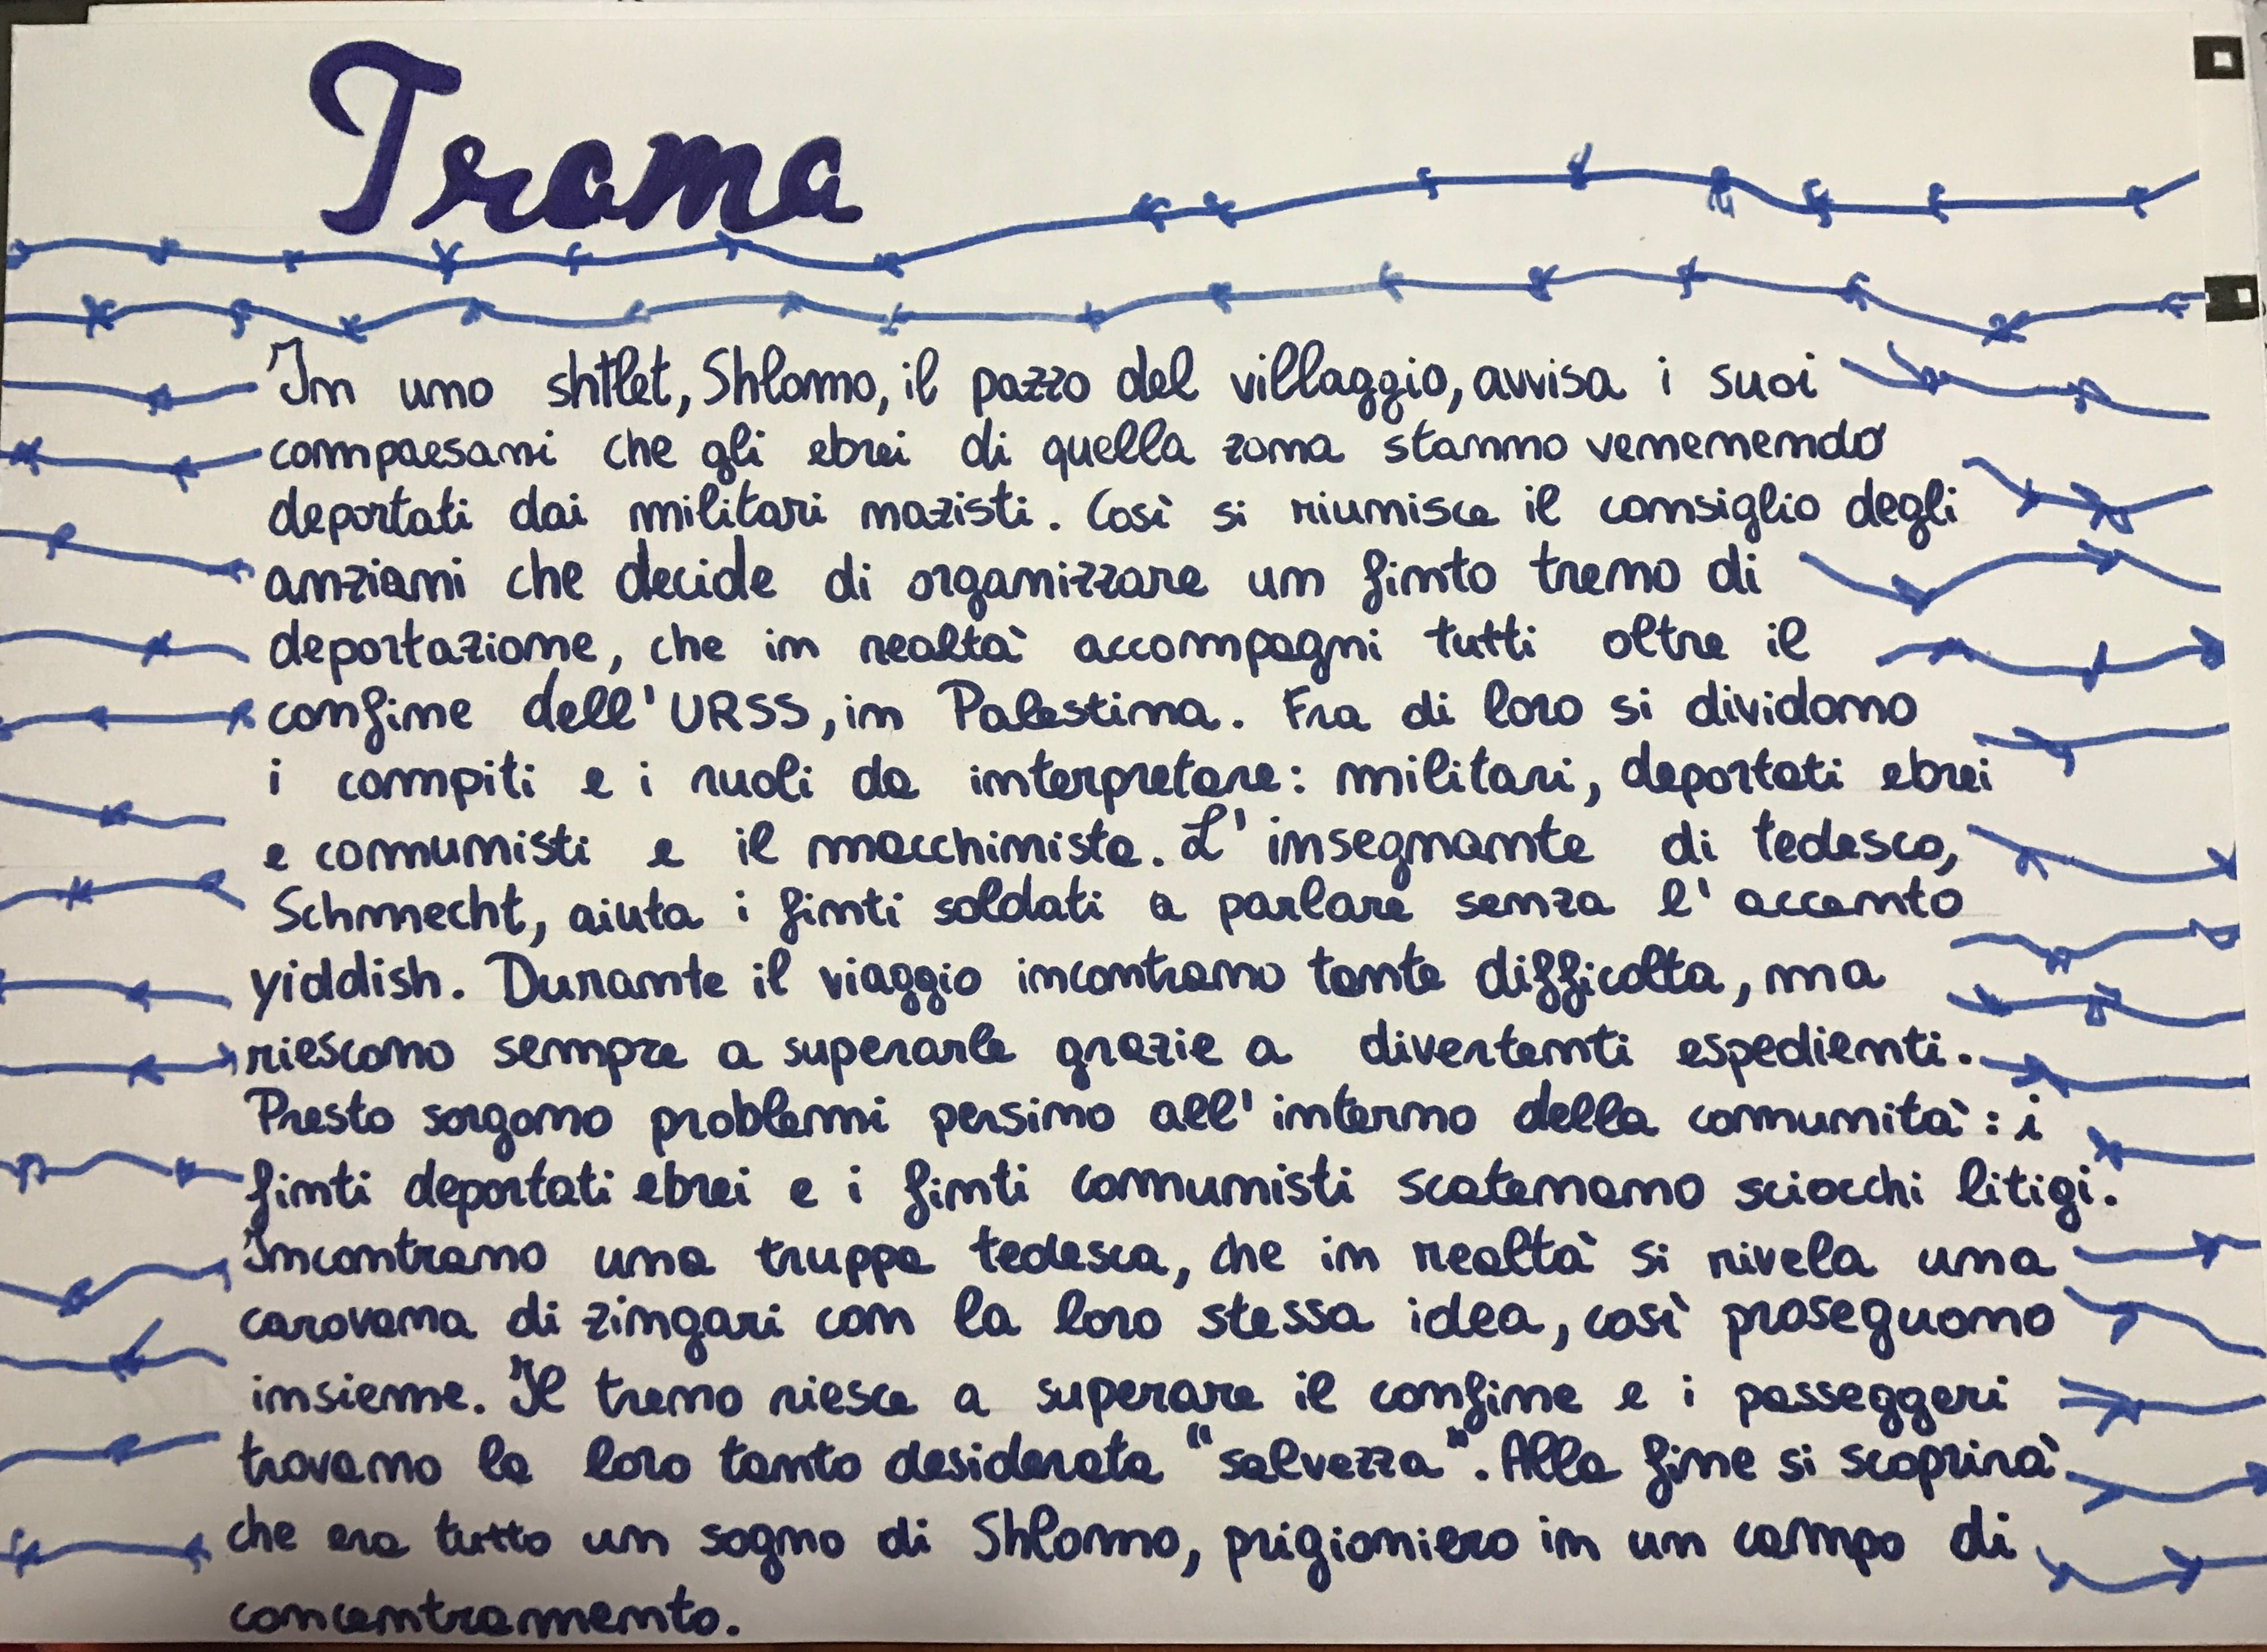 Trama
In uno shtlet, Shlomo, il pazzo del villaggio, avvisa i suoi
compaesani che gli ebrei di quella zona stanno venenendo
deportati dai militari nazisti. Così si riunisce il consiglio degli
anziani che decide di organizzare un finto treno di
deportazione, che in realtà accompagni tutti oltre il
confine dell'URSS, in Palestina. Fra di loro si dividono
i compiti e i ruoli da interpretare: militari, deportati ebrei
e comunisti e il macchinista. L'insegnante di tedesco,
Schmecht, aiuta i finti soldati a parlare senza l'accento
yiddish. Durante il viaggio incontrano tante difficolta, ma
riescono sempre a superarle grazie a divertenti espedienti.
Presto sorgono problemi persino all'interno della comunità: i
finti deportati ebrei e i finti comunisti scatenano sciocchi litigi.
Incontrano una truppa tedesca, che in realtà si rivela una
carovana di zingari con la loro stessa idea, così proseguono
insieme. Il treno riesce a superare il confine e i passeggeri
trovano la loro tanto desiderata "salvezza". Alla fine si scoprirà
che era tutto un sogno di Shlomo, prigioniero in un campo di
concentramento.